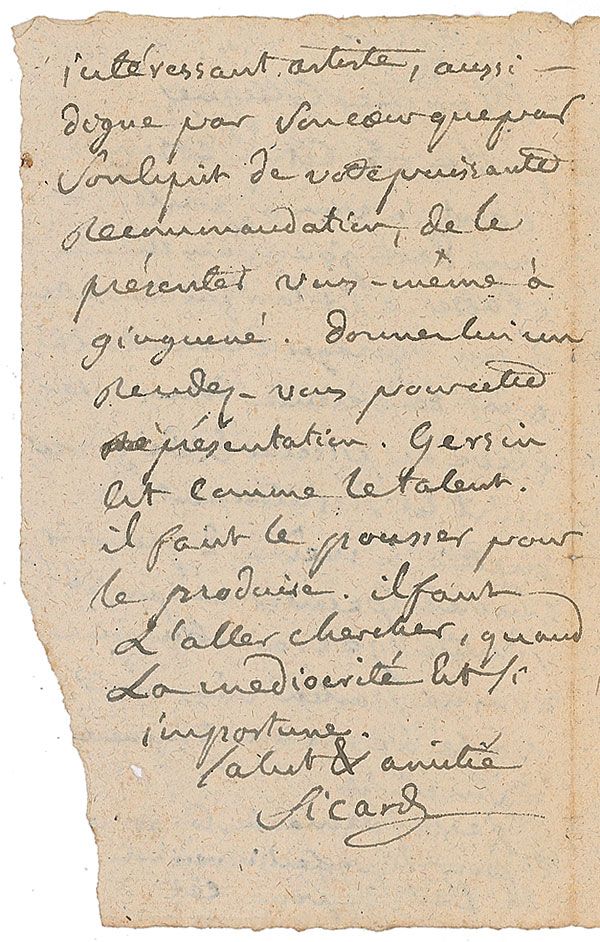 intéressant artiste, aussi
digne par son cœur que par
son esprit de votre puissante
recommandation, de le
présenter vous-même à
ginguené. donner lui un
rendez-vous pour cette
présentation. Gersin
est comme le talent.
il faut le pousser pour
le produire. il faut
L'aller chercher, quand
La mediocrité est si
importune.
Salut & amitié
Sicard